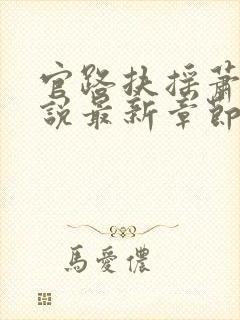 官路扶摇萧
说最新章节
馬愛儂